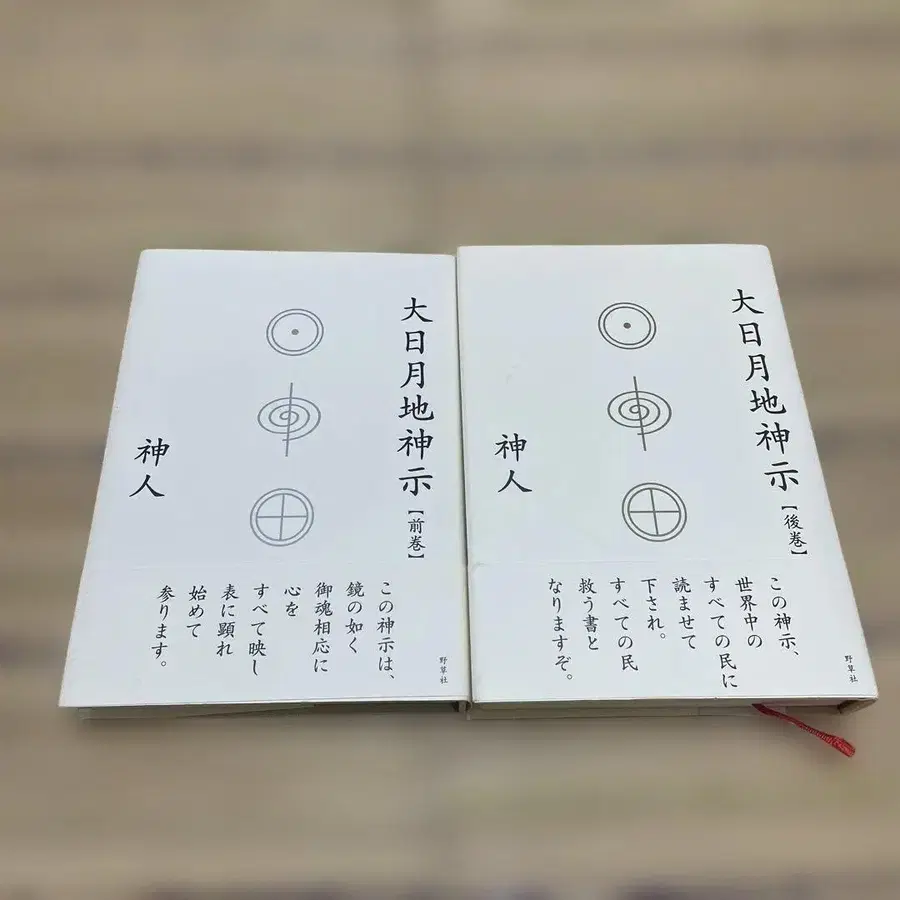 大日月地神示
【前巻】
神人
この神示は、
鏡の如く
御魂相応に
心を
すべて映し
表に顕れ
始めて
参ります。
野草社
大日月地神示
【後巻】
神人
この神示、
世界中の
すべての民に
読ませて
下され。
すべての民
救う書と
なりますぞ。
野草社